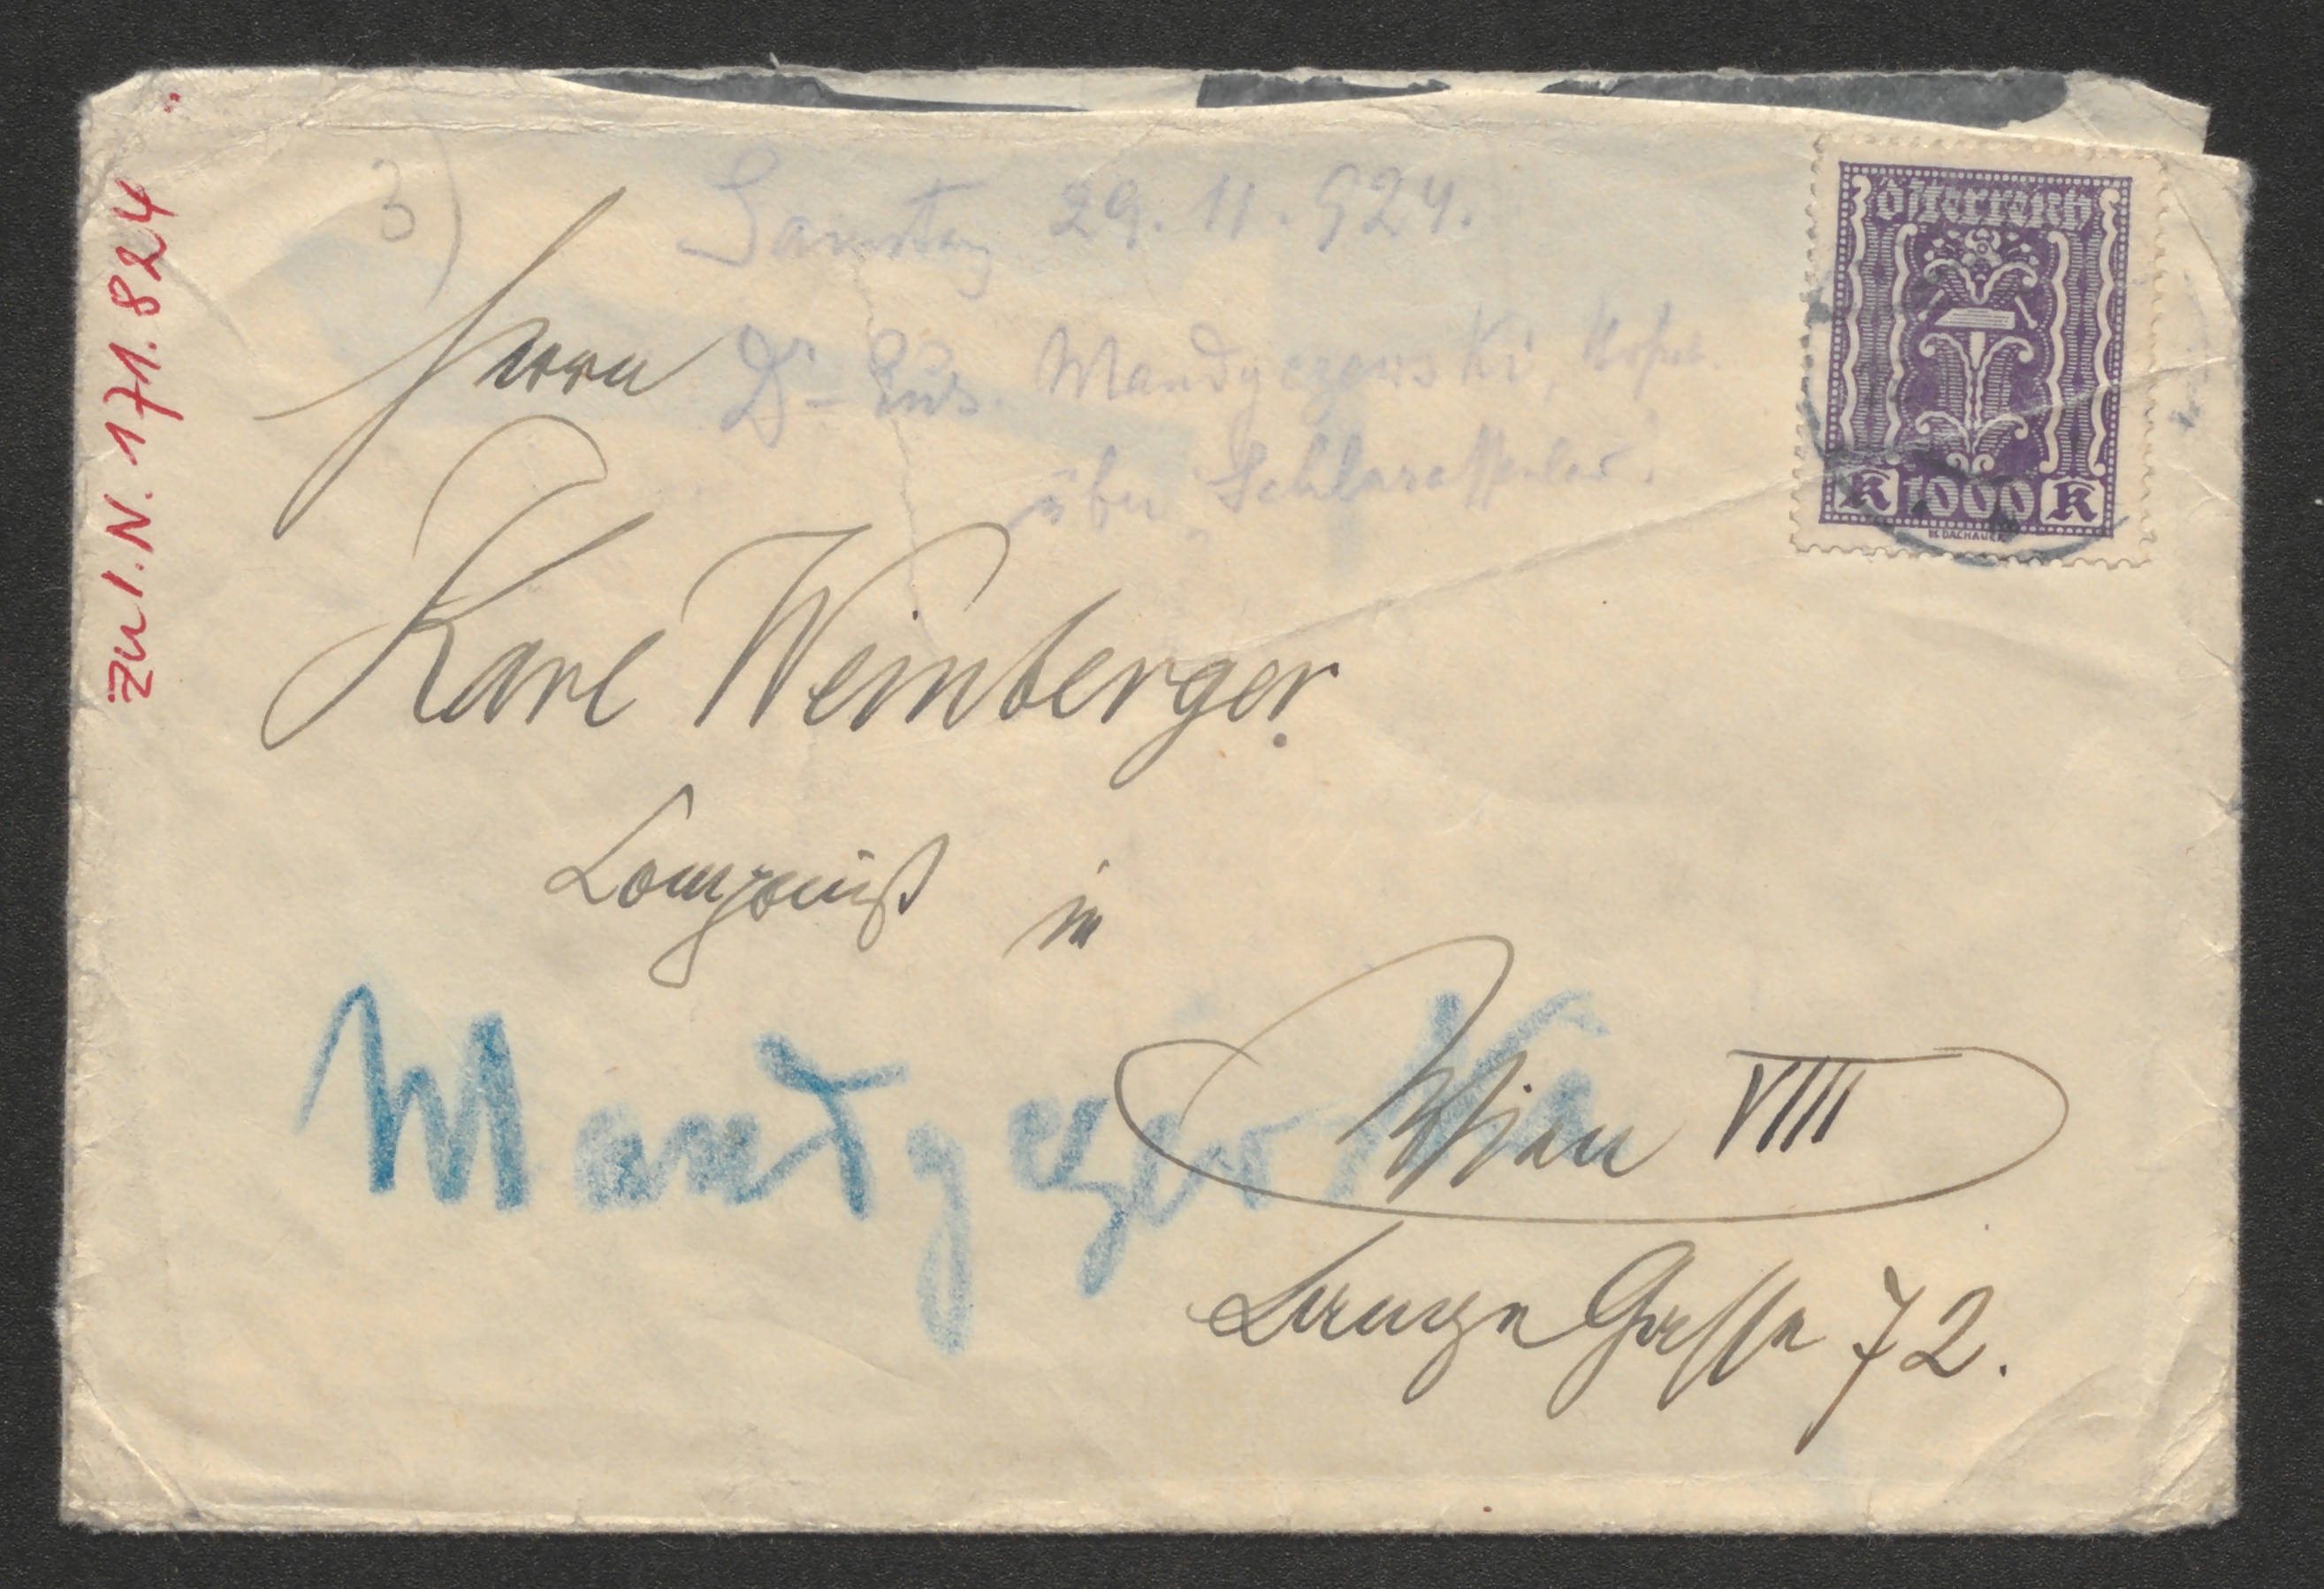 zu I.N. 171.824
3)
Samstag 29. 11. 924.
Dr Eus. Mandyczewski, Hofrat.
über "Schlaraffenland".
Herrn
Karl Weinberger.
Componist in
Mandyczewski
Wien VIII
Lange Gasse 72.
Österreich
K 1000 K
W. DACHAUER